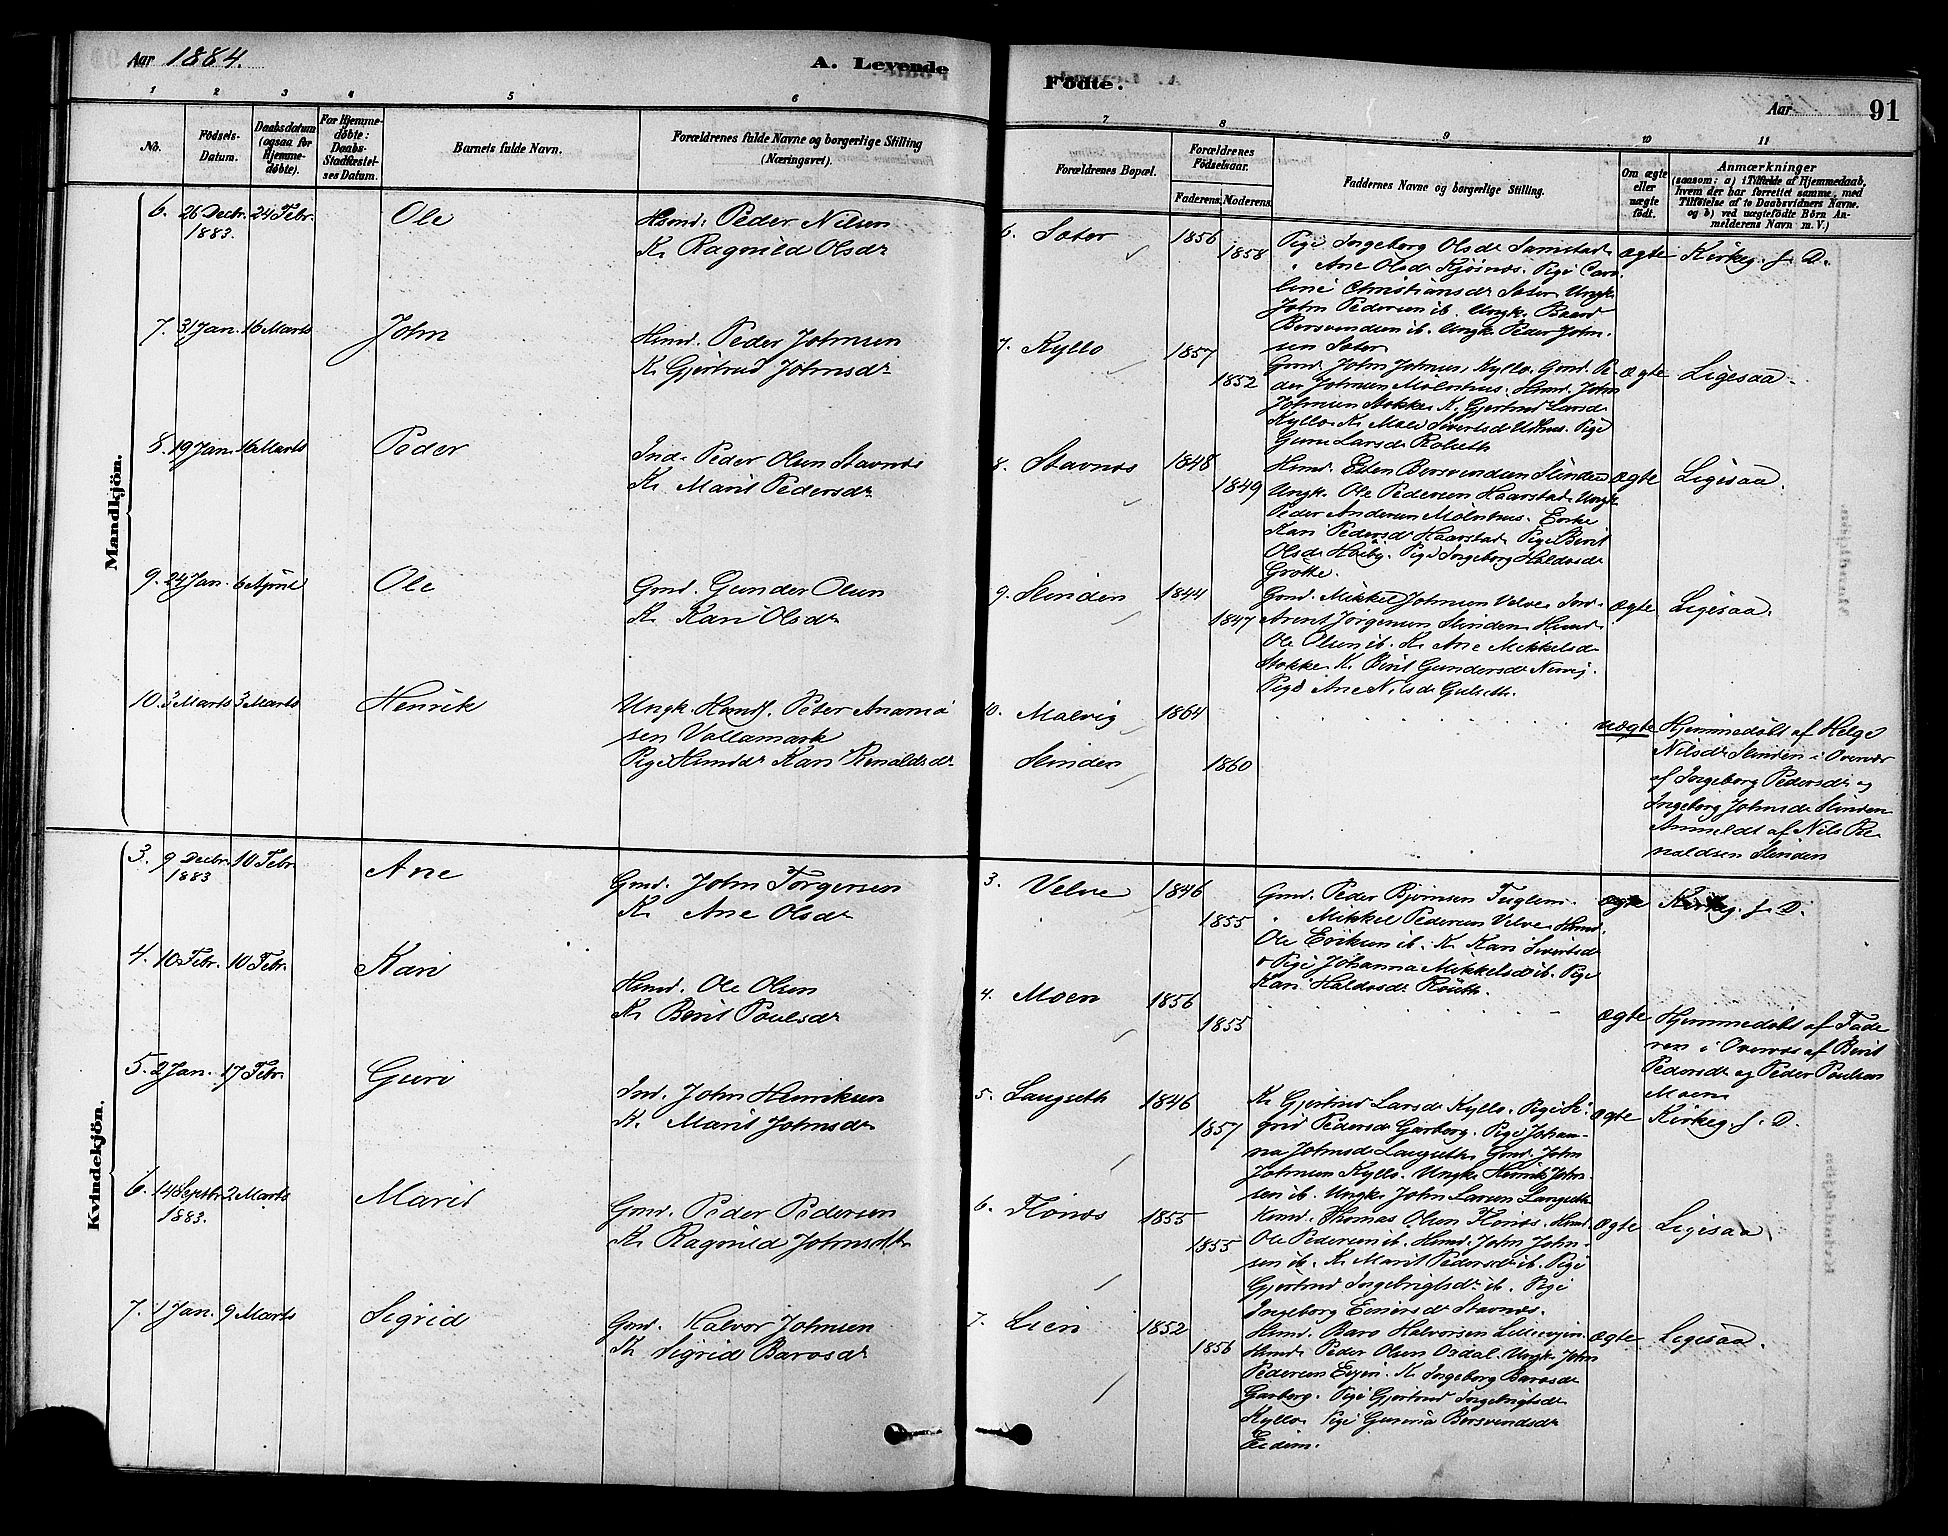 Aar 1884.
A. Levende
Fødte.
Aar
91
1
2
3
4
5
6
7
8
9
10
11
No.
Fødsels-
Datum.
Daabsdatum
(ogsaa for
Hjemme-
døbte).
For Hjemme-
døbte:
Daabs-
Stadfæstel-
ses Datum.
Barnets fulde Navn.
Forældrenes fulde Navne og borgerlige Stilling
(Næringsvei).
Forældrenes Bopæl.
Forældrenes
Fødselsaar.
Faderens.
Moderens.
Faddernes Navne og borgerlige Stilling.
Om ægte
eller
uægte
født.
Anmærkninger
(saasom: a) i Tilfælde af Hjemmedaab,
hvem der har forrettet samme, med
Tilføielse af to Daabsvidners Navne.
og b) ved uægtefødte Børn An-
melderens Navn m. V.)
Mandkjön.
6. 26 Decbr. 24 Febr. Ole
1883.
Husmd. Peder Nilsen
K. Ragnild Olsdr
6. Sæter 1856
1858
Pige Ingeborg Olsdr Samstad
" Ane Olsdr Kjøsnæs. Pige Caro-
line Christiansdr Sæter Ungk.
John Pedersen ib. Ungk. Baard
Børsvendsen ib. Ungk. Peder John-
sen Sæter
ægte Kirkeg. s. D.
7. 31 Jan. 16 Marts John
Husmd. Peder Johnsen
K. Gjertrud Johnsdr
7. Kyllo 1857
1852
Gmd. John Johnsen, Kyllo. Gmd. Pe-
der Johnsen Mølnhus. Husmd. John
Johnsen Stokke K. Gjertrud Larsdr
Kyllo K. Mali Sivertsdr Uthus. Pige
Guru Larsdr
ægte Ligesaa.
8. 19 Jan. 16 Marts Peder
Ind. Peder Olsen Stavnæs
K. Marit Pedersdr
8. Stavnæs 1848
1849
Husmd. Esten Børsvendsen Slinden
Ungk. Ole Pedersen Haarstad. Ungk
Peder Andersen Mølnhus. Enke
Kari Pedersdr Haarstad Pige Berit
Olsdr Høiby. Pige Ingeborg Haldosdr
Grøtte.
ægte Ligesaa.
9. 24 Jan. 6 April Ole
Gmd. Gunder Olsen
K. Kari Olsdr
9. Slinden 1844
1847
Gmd. Mikkel Johnsen Velve Ind.
Arent Jørgensen Slinden Husmd.
Ole Olsen ib. K. Ane Mikkelsdr
Stokke K. Berit Gundersdr
Pige Ane Nilsdr Gulseth.
ægte Ligesaa.
10. 3 Marts 3 Marts Henrik
Ungk. Husmdf. Peter
sen Vollamark
Pige Husmdr Kari Renaldsdr
10. Malvig 1864
Slinden 1860
uægte
Hjemmedøbt af Helge
Nilsdr Slinden i Overvær
af Ingeborg Pedersdr og
Ingeborg Johnsdr Slinden
Anmeldt af Nils Re-
naldsen Slinden
Kvindekjön.
3. 9 Decbr. 10 Febr. Ane
1883
Gmd. John Torgersen
K. Ane Olsdr
3. Velve 1846
1855
Gmd. Peder Bjørnsen Fuglem.
" Mikkel Pedersen Velve Husmd.
Ole Eriksen ib. K. Kari Sivertsdr
Pige Johanna Mikkelsdr ib. Pige
Kari Haldosdr
ægte Kirkeg. s. D.
4. 10 Febr. 10 Febr. Kari
Husmd. Ole Olsen
K. Berit Poulsdr
4. Moen 1856
1855
ægte
Hjemmedøbt af Fade-
ren i Overvær af Berit
Pedersdr og Peder Poulsen
Moen
5. 2 Jan. 17 Febr. Guri
Ind. John Henriksen
K. Marit Johnsdr
5. Langseth 1846
1857
K. Gjertrud Larsdr Kyllo. Pige Si-
grid Pedersdr Garberg. Pige Johan-
na Johnsdr Langseth Gmd. John
Johnsen Kyllo. Ungk. Henrik John-
sen ib. Ungk. John Larsen Langseth
ægte Kirkeg. s. D.
6. 14 Septbr 2 Marts Marit
1883.
Gmd. Peder Pedersen
K. Ragnild Johnsdtr
6. Flønæs 1855
1855
Husmd. Thomas Olsen Flønæs. Husmd.
Ole Pedersen ib. Husmd. John John-
sen ib. K. Marit Pedersdr ib. Pige
Gjertrud Ingebrigtsdr ib. Pige
Ingeborg Einersdr Stavnæs.
ægte Ligesaa
7. 1 Jan. 9 Marts Sigrid
Gmd. Halvor Johnsen
K. Sigrid Barosdr
7. Lien 1852
1856
Husmd. Baro Halvorsen Lillevjen
Husmd. Peder Olsen Ousdal. Ungk. John
Pedersen K. Ingeborg Barosdr
Garberg. Pige Gjertrud Ingebrigtsdr
Kyllo Pige Gunnria Børsvendsdr
Eidem.
ægte Ligesaa.